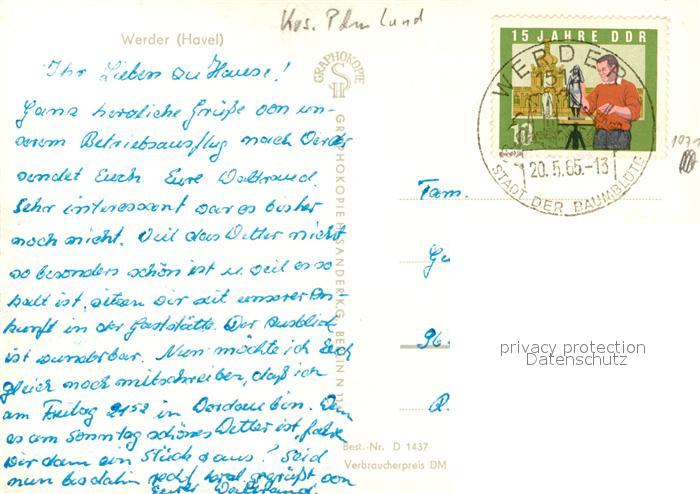 Krs. Pdm Land
Werder (Havel)
Ihr Lieben zu Hause!
Ganz herzliche Grüße von un-
serem Betriebsausflug nach Werder
sendet Euch Eure Waltraud.
Sehr interessant war es bisher
noch nicht. Weil das Wetter nicht
so besonders schön ist u. weil es so
kalt ist, sitzen wir seit unserer An-
kunft in der Gaststätte. Der Ausblick
ist wunderbar. Nun möchte ich Euch
gleich noch mitschreiben, daß ich
am Freitag 21⁵² in bin. Wenn
es am Sonntag schönes Wetter ist, fahren
wir dann ein Stück raus! Seid
nun bis dahin recht herzl. gegrüßt von
Eurer Waltraud
GRAPHOKOPIE
GRAPHOKOPIE H. SANDER KG. BERLIN N 113
15 JAHRE DDR
10
WERDER
1512
20.5.65.-13
STADT DER BAUMBLÜTE
Fam.
privacy protection
Datenschutz
Best.-Nr. D 1437
Verbraucherpreis DM